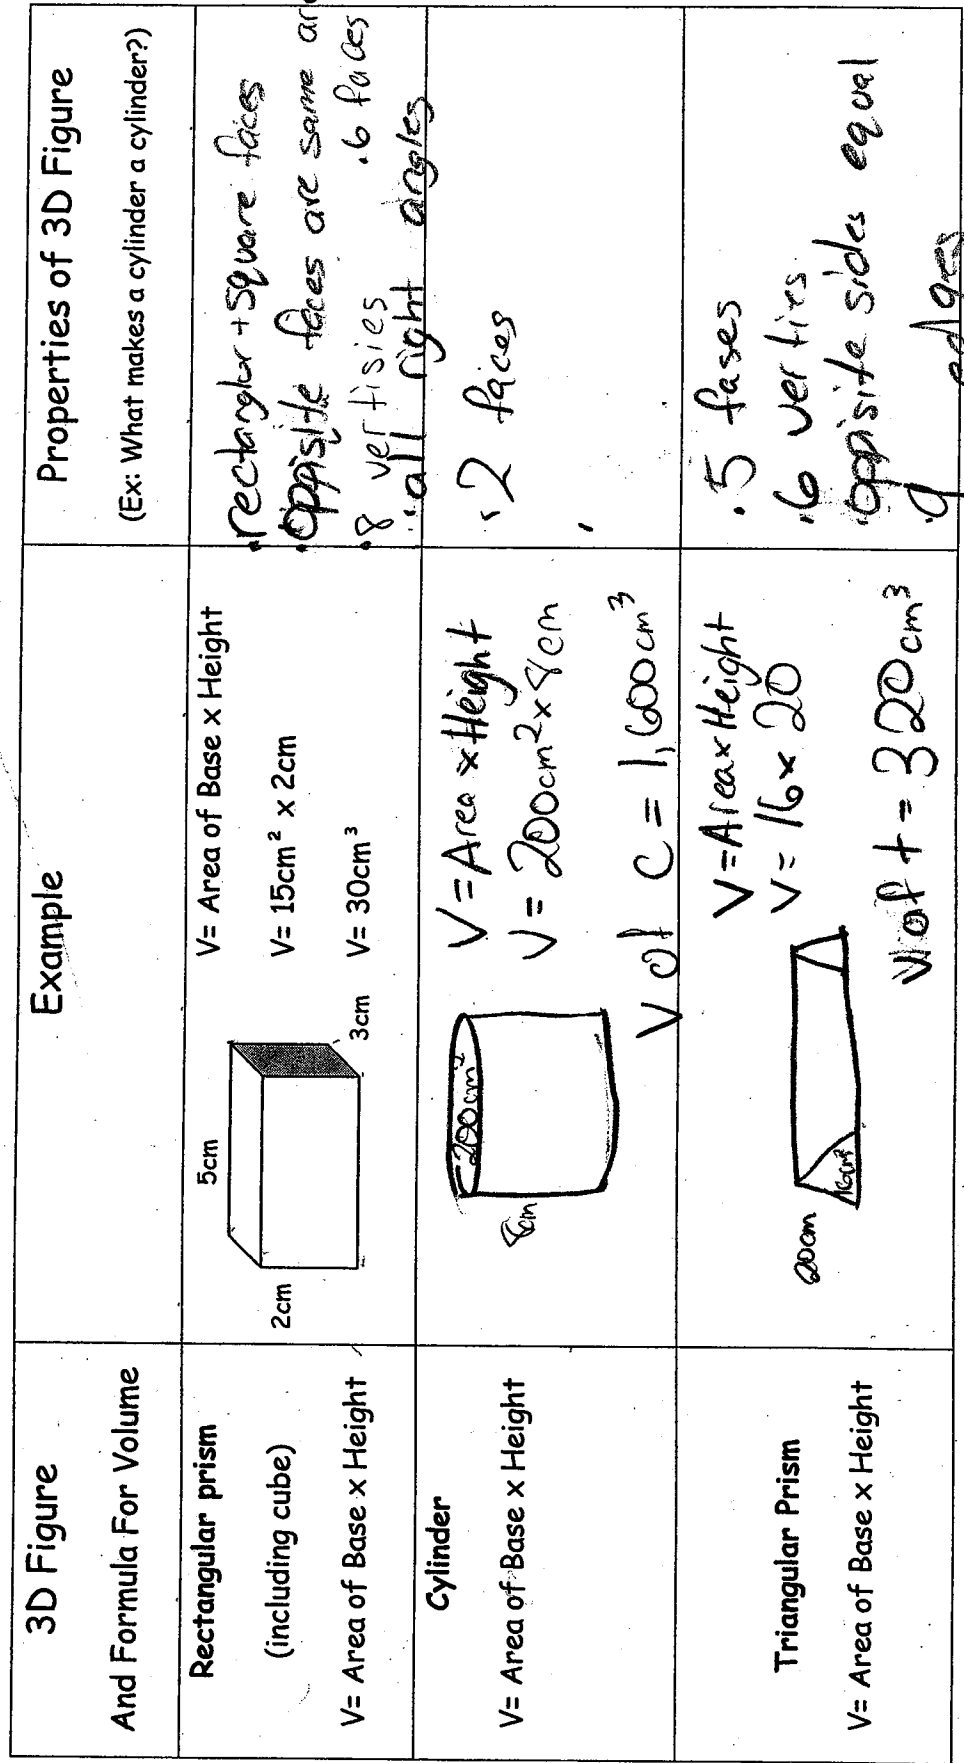 3D Figure
And Formula For Volume
Example
Properties of 3D Figure
(Ex: What makes a cylinder a cylinder?)
Rectangular prism
(including cube)
V= Area of Base x Height
5cm
2cm
3cm
V= Area of Base x Height
V= 15cm² x 2cm
V= 30cm³
.rectanglur + square faces
.oppisite faces are same
.8 vertisies .6 faces
.all right angles
Cylinder
V= Area of Base x Height
200cm²
8cm
V=Area x Height
V= 200cm² x 8cm
V of C = 1,600cm³
.2 faces
Triangular Prism
V= Area of Base x Height
20cm
16cm²
V=Area x Height
V= 16 x 20
V of t = 320cm³
.5 fases
.6 verties
.oppisite sides equal
.9 edges